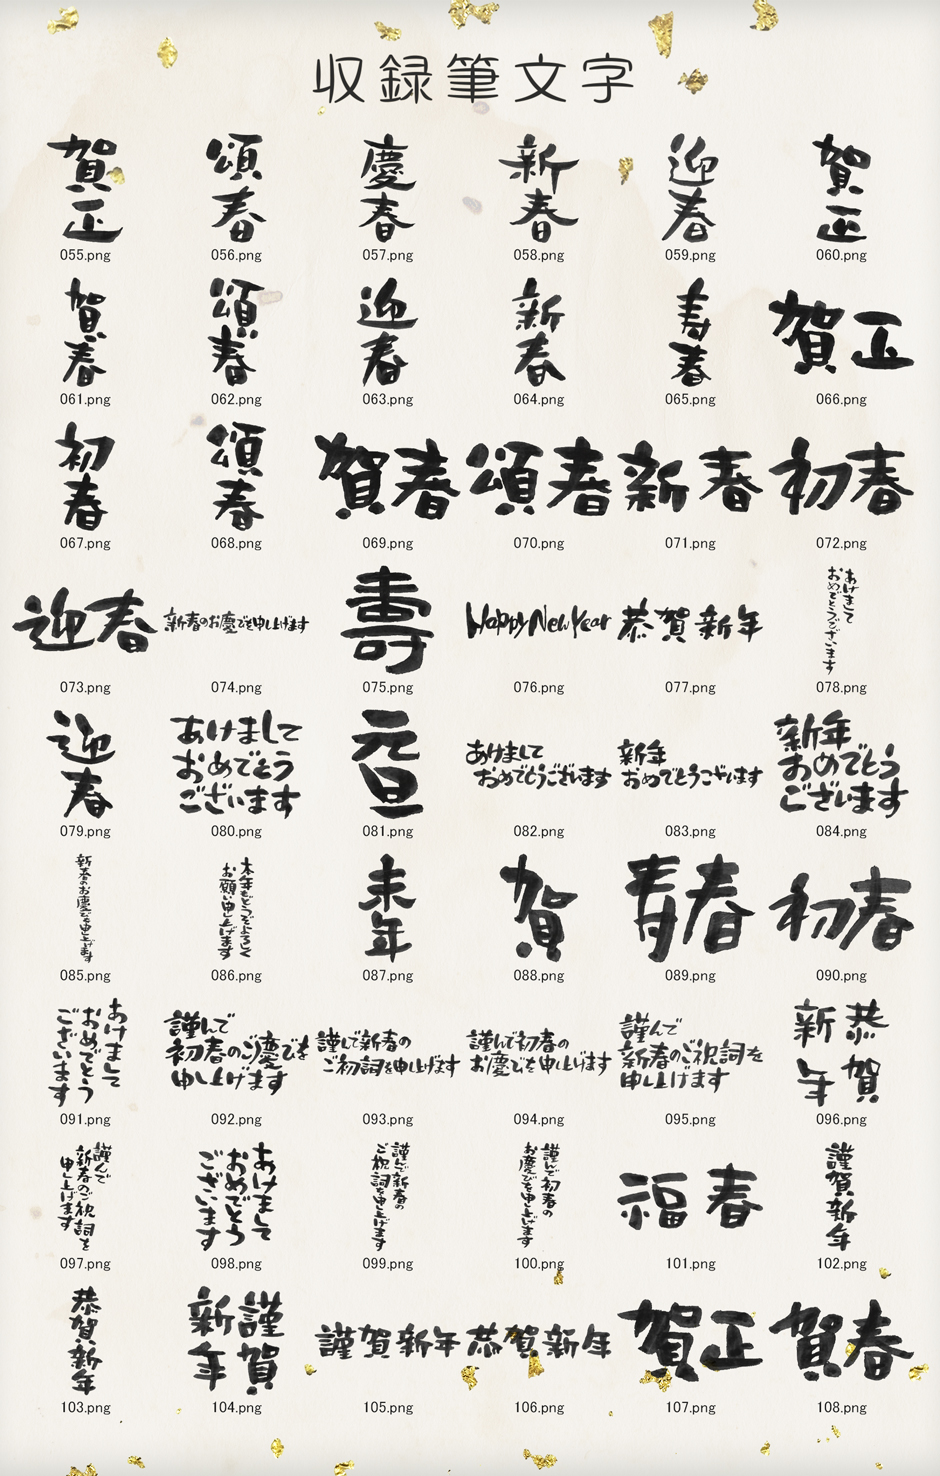 収録筆文字
賀正
055.png
頌春
056.png
慶春
057.png
新春
058.png
迎春
059.png
賀正
060.png
賀春
061.png
頌春
062.png
迎春
063.png
新春
064.png
寿春
065.png
賀正
066.png
初春
067.png
頌春
068.png
賀春
069.png
頌春
070.png
新春
071.png
初春
072.png
迎春
073.png
新春のお慶びを申し上げます
074.png
壽
075.png
Happy New Year
076.png
恭賀新年
077.png
あけまして
おめでとうございます
078.png
迎春
079.png
あけまして
おめでとう
ございます
080.png
元旦
081.png
あけまして
おめでとうございます
082.png
新年
おめでとうございます
083.png
新年
おめでとう
ございます
084.png
新春のお慶びを申し上げます
085.png
本年もどうぞよろしく
お願い申し上げます
086.png
来年
087.png
賀
088.png
青春
089.png
初春
090.png
あけまして
おめでとう
ございます
091.png
謹んで
初春のご慶びを
申し上げます
092.png
謹んで新春の
ご初詞を申し上げます
093.png
謹んで初春の
お慶びを申し上げます
094.png
謹んで
新春のご祝詞を
申し上げます
095.png
恭賀
新年
096.png
謹んで
新春のご祝詞を
申し上げます
097.png
あけまして
おめでとう
ございます
098.png
謹んで新春の
ご祝詞を申し上げます
099.png
謹んで初春の
お慶びを申し上げます
100.png
福春
101.png
謹賀新年
102.png
恭賀新年
103.png
謹賀
新年
104.png
謹賀新年
105.png
恭賀新年
106.png
賀正
107.png
賀春
108.png